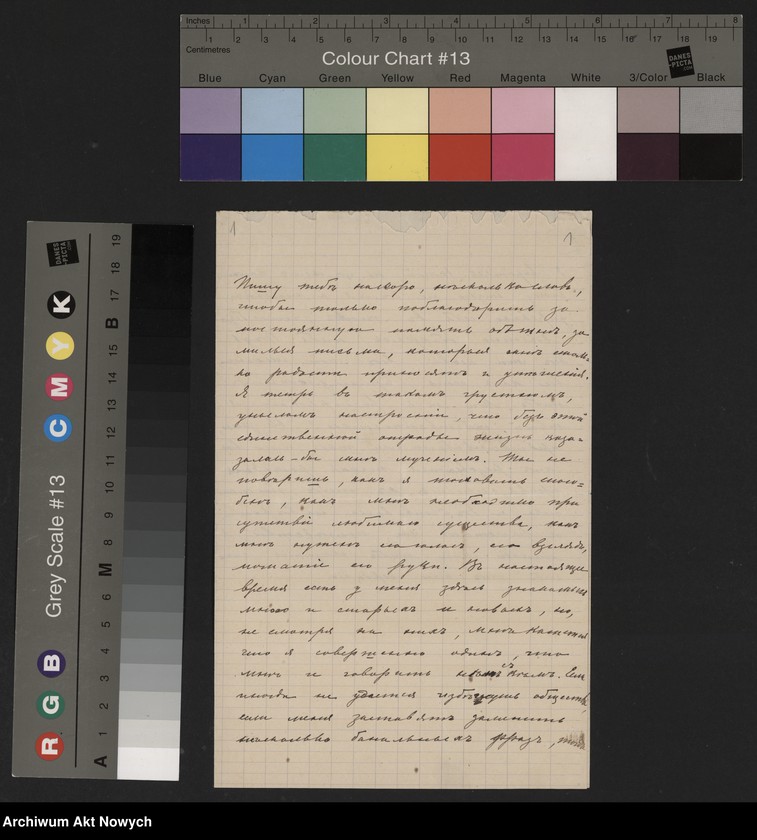 Inches 1 2 3 4 5 6 7 8
1 2 3 4 5 6 7 8 9 10 11 12 13 14 15 16 17 18 19
Centimetres
Colour Chart #13
DANES PICTA
Blue Cyan Green Yellow Red Magenta White 3/Color Black
Grey Scale #13
R G B C M Y K
A 1 2 3 4 5 6 M 8 9 10 11 12 13 14 15 B 17 18 19
DANES PICTA
1 1
Пишу тебѣ наскоро, нѣсколько словъ,
чтобы только поблагодарить за
постоянную память обо мнѣ, за
милыя письма, которыя мнѣ столь-
ко радости приносятъ и утѣшенія.
Я теперь въ такомъ грустномъ,
уныломъ настроеніи, что безъ этой
единственной отрады жизнь каза-
залась-бы мнѣ мученіемъ. Ты не
повѣришь, какъ я
какъ мнѣ необходимо при
сутствіе любимаго существа, какъ
мнѣ нуженъ его голосъ, его взглядъ,
пожатіе его руки. Въ настоящее
время есть у меня здѣсь знакомыхъ
много и старыхъ и новыхъ, но,
не смотря на нихъ, мнѣ кажется
что я совершенно одинъ, что
мнѣ и говорить не съ кѣмъ. Если
иногда не удается общества,
если меня заставятъ
нѣсколько банальныхъ фразъ,
Archiwum Akt Nowych